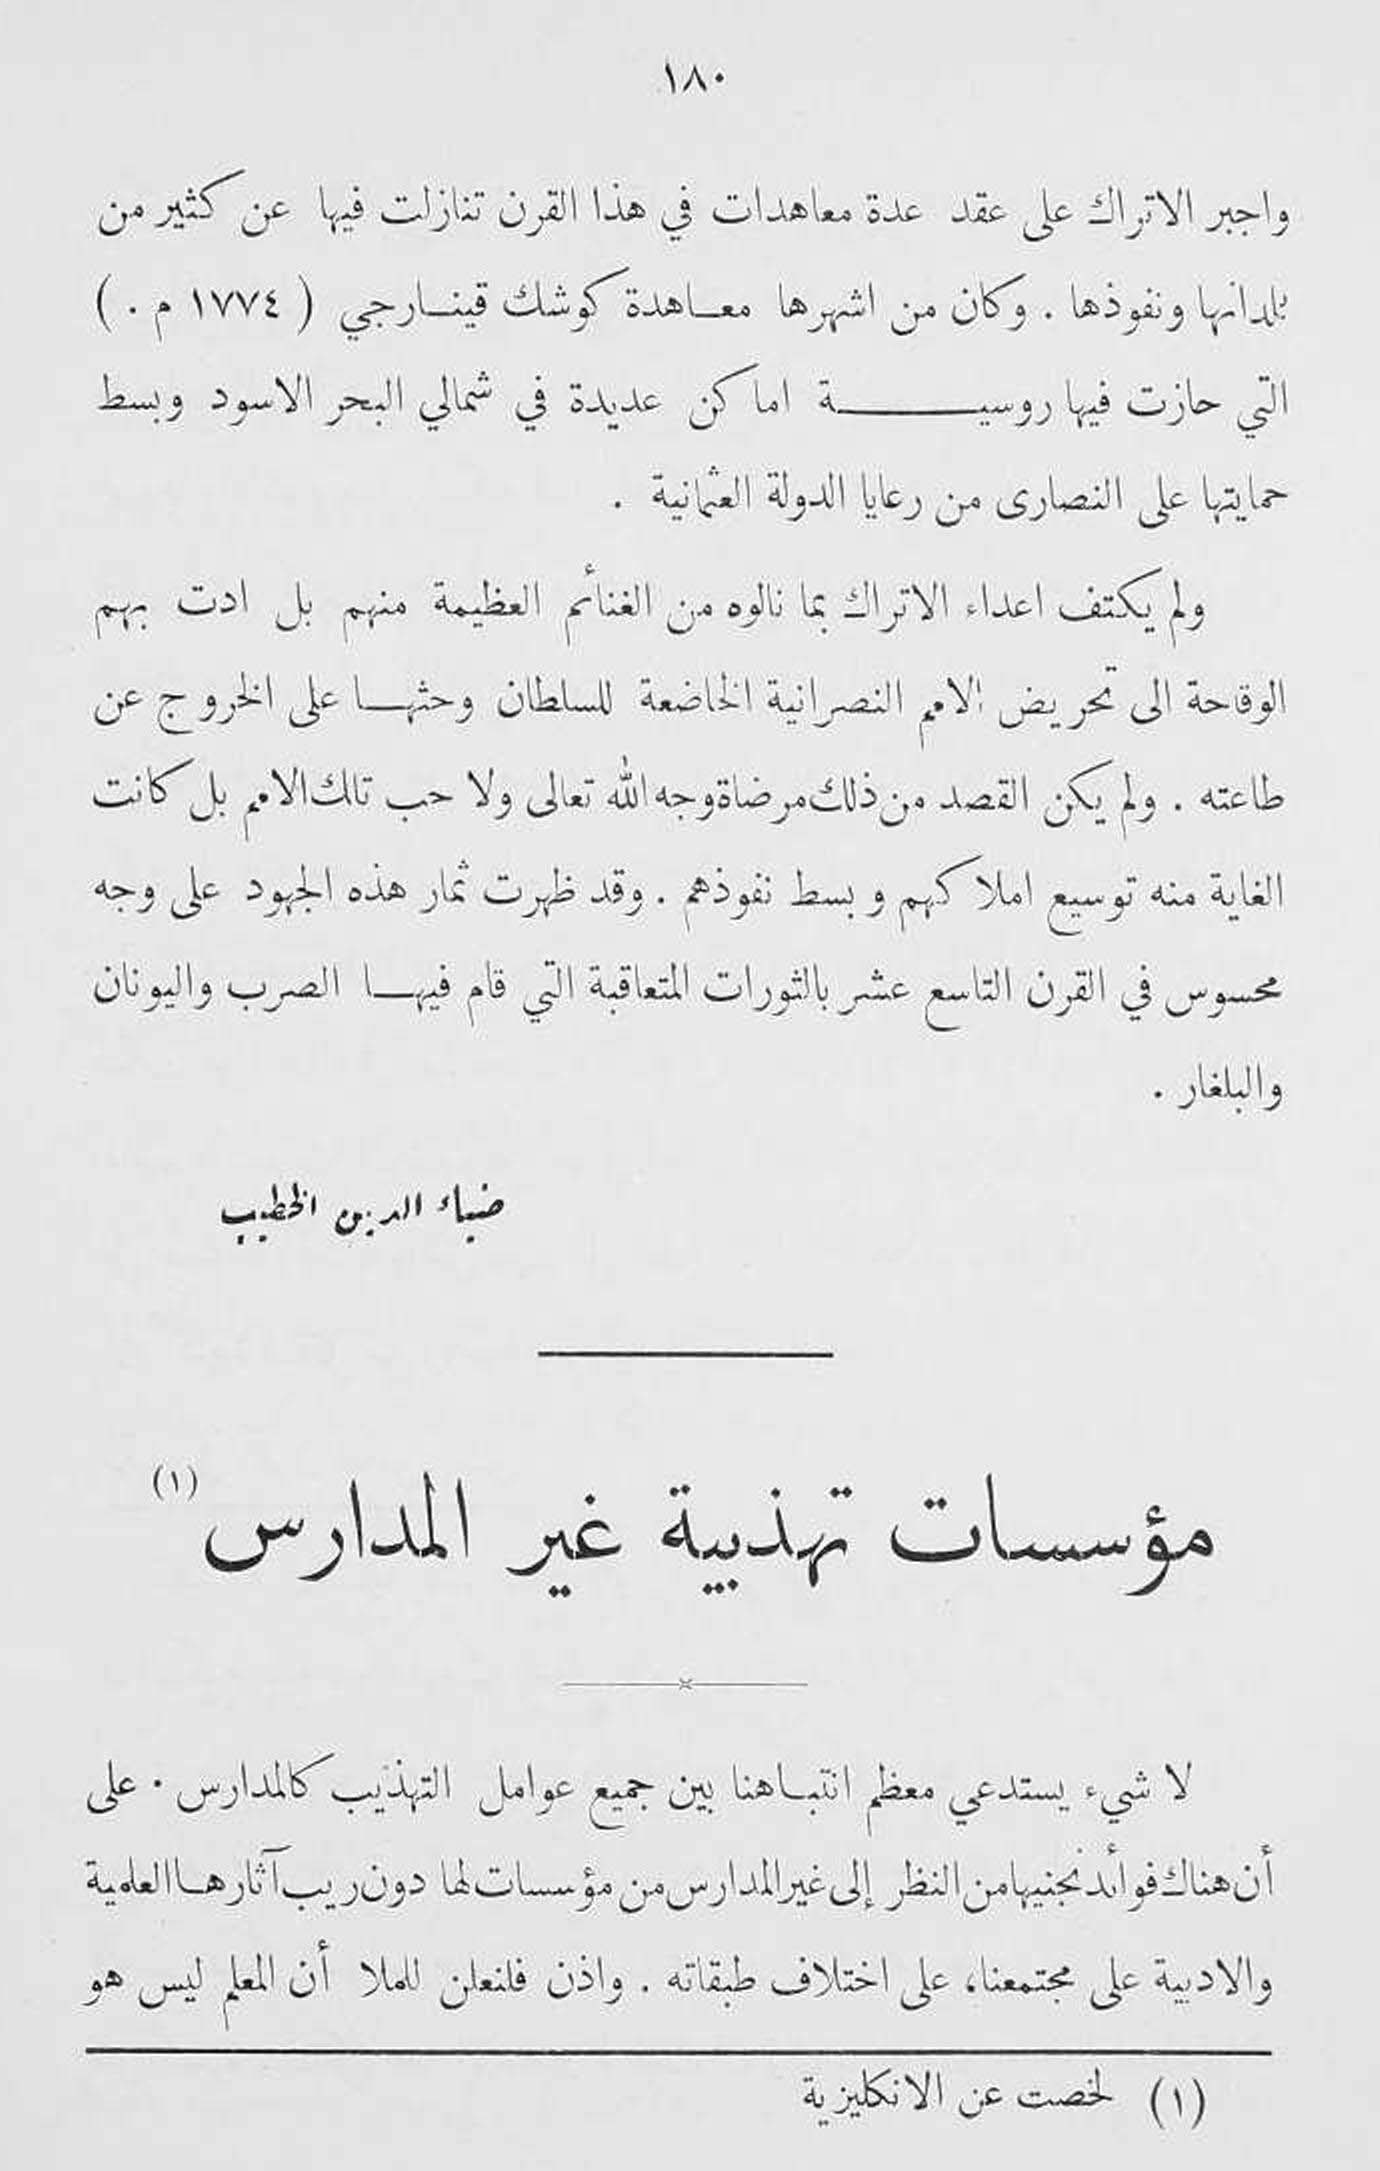 ١٨٠
واجبر الاتراك على عقد عدة معاهدات في هذا القرن تنازلت فيها عن كثير من
بلدانها ونفوذها . وكان من اشهرها معـاهدة كوشك قينـارجي ( ١٧٧٤ م . )
التي حازت فيها روسيـــــة اماكن عديدة في شمالي البحر الاسود وبسط
حمايتها على النصارى من رعايا الدولة العثمانية .
ولم يكتف اعداء الاتراك بما نالوه من الغنائم العظيمة منهم بل ادت بهم
الوقاحة الى تحريض الامم النصرانية الخاضعة للسلطان وحثهـا على الخروج عن
طاعته . ولم يكن القصد من ذلك مرضاة وجه الله تعالى ولا حب تلك الامم بل كانت
الغاية منه توسيع املاكهم وبسط نفوذهم . وقد ظهرت ثمار هذه الجهود على وجه
محسوس في القرن التاسع عشر بالثورات المتعاقبة التي قام فيهـا الصرب واليونان
والبلغار .
ضياء الدين الخطيب
مؤسسات تهذيبية غير المدارس (١)
لا شيء يستدعي معظم انتبـاهنا بين جميع عوامل التهذيب كالمدارس . على
أن هناك فوائد نجنيها من النظر إلى غير المدارس من مؤسسات لها دون ريب آثارهـا العلمية
والادبية على مجتمعنا، على اختلاف طبقاته . واذن فلنعلن للملا أن المعلم ليس هو
(١) لخصت عن الانكليزية